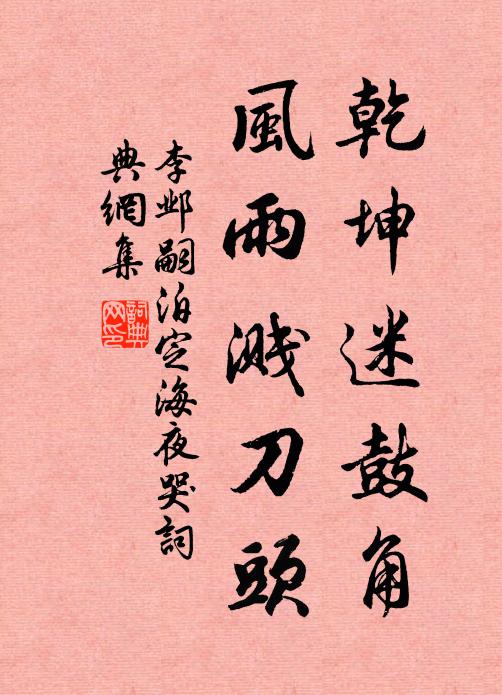 乾坤迷鼓角
風雨濺刀頭
李邺嗣泊定海夜哭詞
典網集
詞典
网印